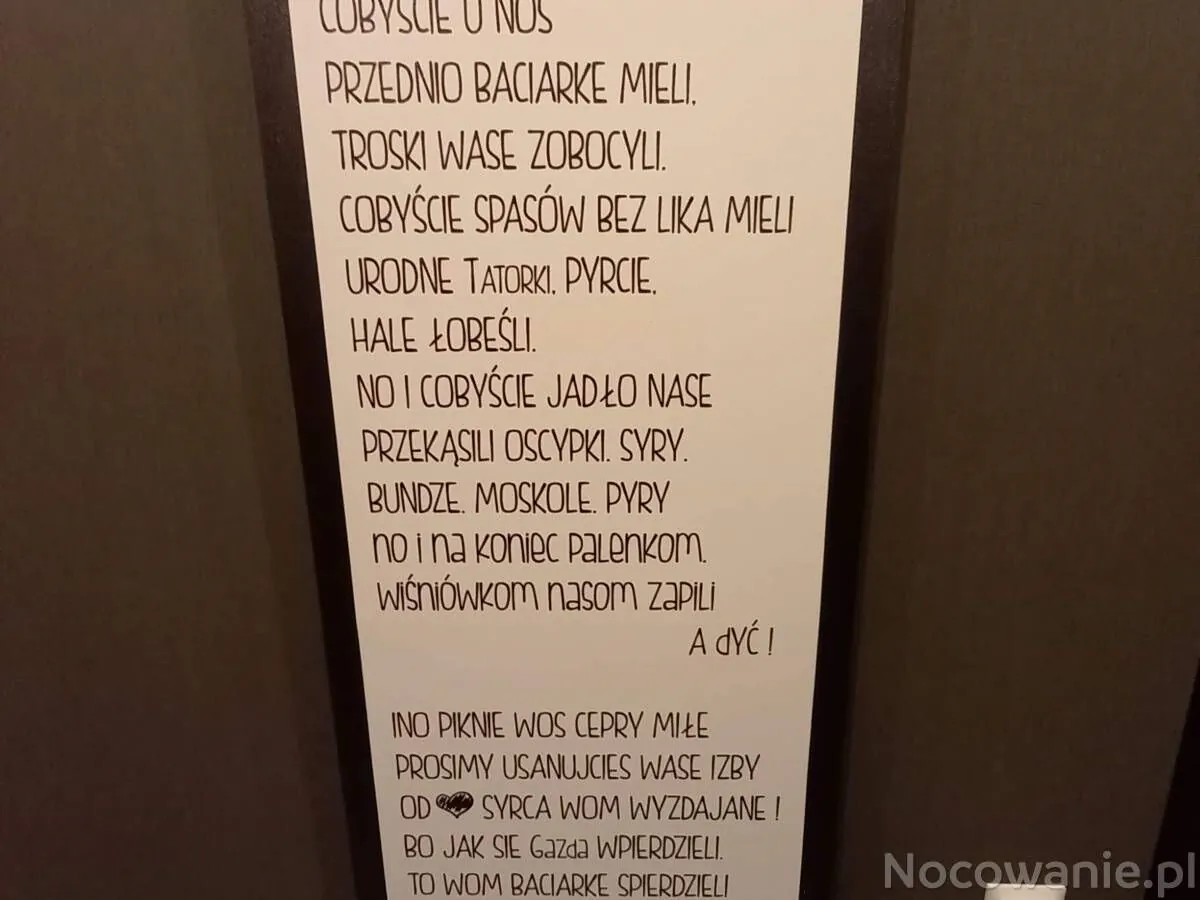 COBYŚCIE U NOS
PRZEDNIO BACIARKE MIELI,
TROSKI WASE ZOBOCYLI.
COBYŚCIE SPASÓW BEZ LIKA MIELI
URODNE TATORKI, PYRCIE,
HALE ŁOBEŚLI.
NO I COBYŚCIE JADŁO NASE
PRZEKĄSILI OSCYPKI. SYRY.
BUNDZE. MOSKOLE. PYRY
no i na koniec palenkom.
wiśniówkom nasom zapili
A dYĆ !
INO PIKNIE WOS CEPRY MIŁE
PROSIMY USANUJCIES WASE IZBY
OD ♥ SYRCA WOM WYZDAJANE !
BO JAK SIE Gazda WPIERDZIELI.
TO WOM BACIARKE SPIERDZIELI
Nocowanie.pl